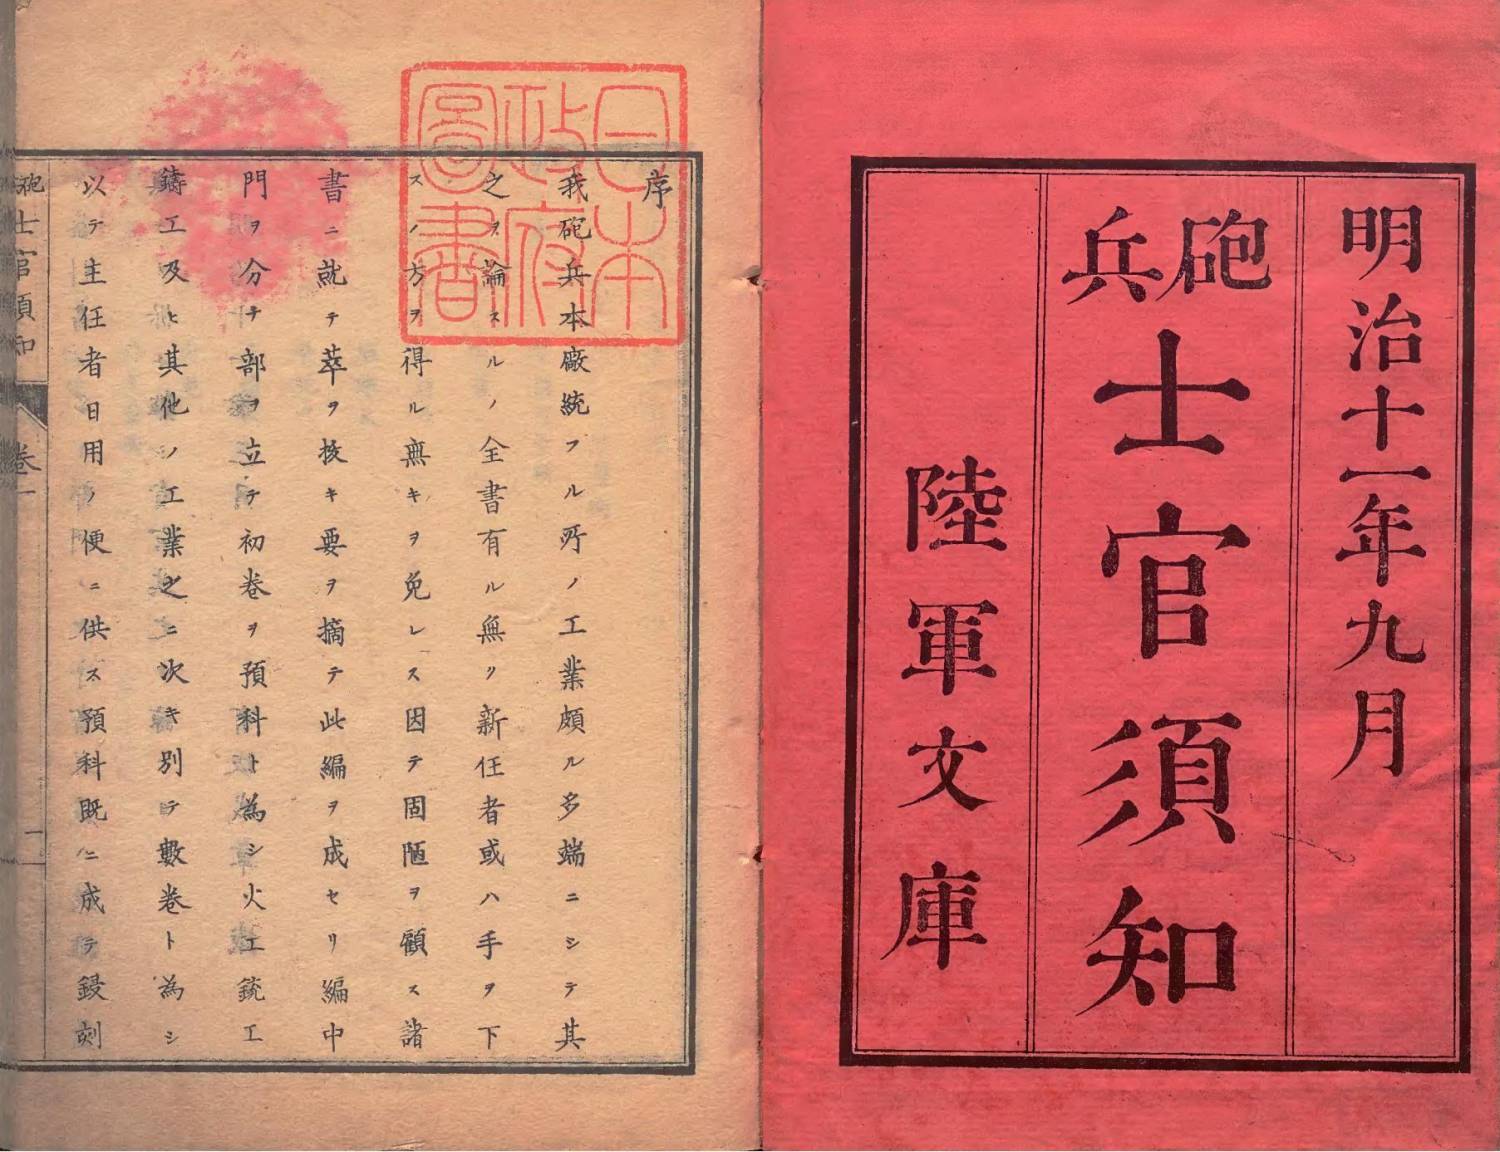 明治十一年九月
砲兵
士官須知
陸軍文庫
日本
政府
圖書
序
我砲兵本廠統フル所ノ工業頗ル多端ニシテ其
之ヲ論スルノ全書有ル無リ新任者或ハ手ヲ下
スノ方ヲ得ル無キヲ免レス因テ固陋ヲ顧ス諸
書ニ就テ萃ヲ拔キ要ヲ摘テ此編ヲ成セリ編中
門ヲ分チ部ヲ立テ初卷ヲ預科ト為シ火工銃工
鑄工及ヒ其他ノ工業之ニ次キ別テ數卷ト為シ
以テ主任者日用ノ便ニ供ス預科既ニ成テ鋟刻
砲士官須知
卷一
一